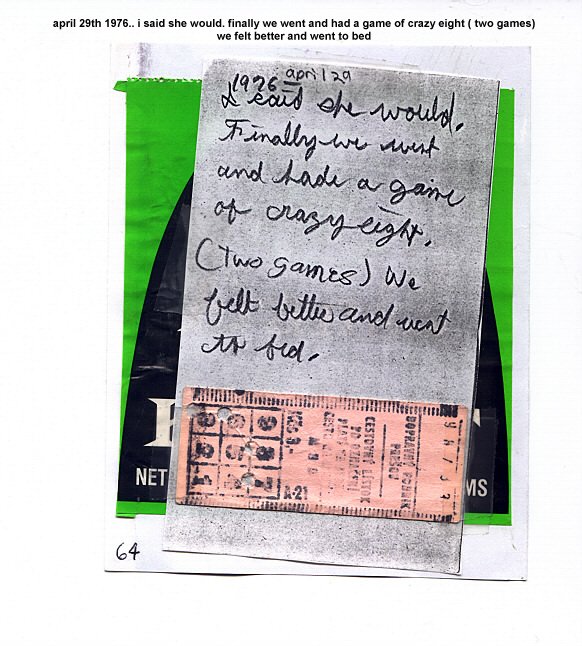 april 29th 1976.. i said she would. finally we went and had a game of crazy eight ( two games)
we felt better and went to bed
1976 april 29
I said she would.
Finally we went
and hade a game
of crazy eight.
(Two games) We
felt better and went
to bed.
A-21
NET
MS
64